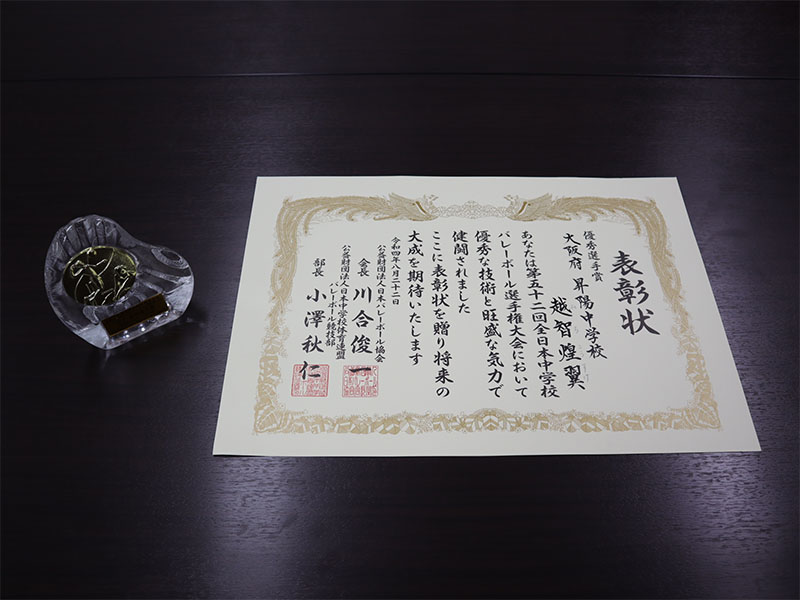 表彰状
優秀選手賞
大阪府 昇陽中学校
越智煌翼
あなたは第五十二回全日本中学校
バレーボール選手権大会において
優秀な技術と旺盛な気力で
健闘されました
ここに表彰状を贈り将来の
大成を期待いたします
令和四年八月二十二日
公益財団法人日本バレーボール協会
会長 川合俊一
公益財団法人日本中学校体育連盟
バレーボール競技部
部長 小澤秋仁